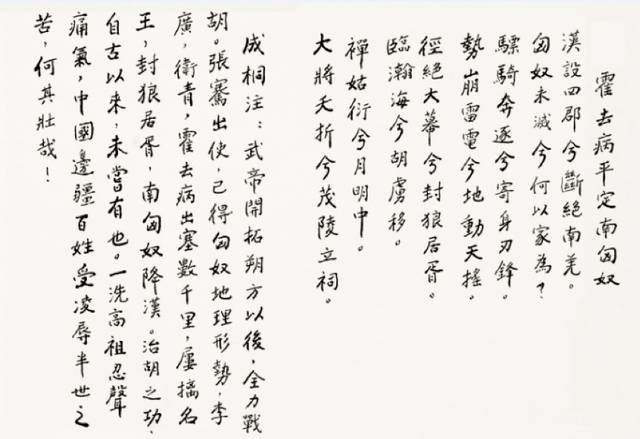 霍去病平定南匈奴
漢設四郡兮斷絕南羌。
匈奴未滅兮何以家為?
驃騎奔逐兮寄身刃鋒。
勢崩雷電兮地動天搖。
徑絕大幕兮封狼居胥。
臨瀚海兮胡虜移。
禪姑衍兮月明中。
大將夭折兮茂陵立祠。
成桐注:武帝開拓朔方以後,全力戰
胡。張騫出使,已得匈奴地理形勢,李
廣,衛青,霍去病出塞數千里,屢擒名
王,封狼居胥,南匈奴降漢。治胡之功,
自古以來,未嘗有也。一洗高祖忍聲
痛氣,中國邊疆百姓受凌辱半世之
苦,何其壯哉!